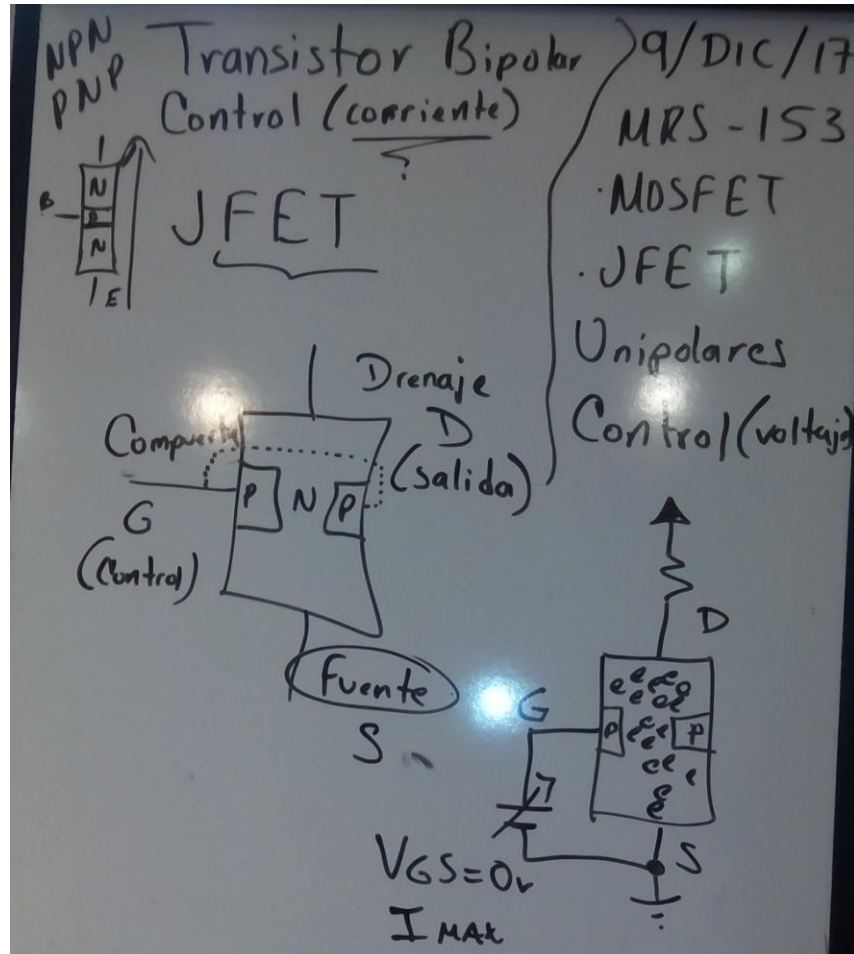 NPN
PNP
Transistor Bipolar
Control (corriente)
?
N
B
P
N
E
JFET
9/DIC/17
MRS-153
·MOSFET
·JFET
Unipolares
Control (voltaje)
Drenaje
D
(Salida)
Compuerta
G
(Control)
P N P
Fuente
S
D
e e e e e
e e e e
G
P e e e P
e e
e e e
e
e
S
VGS=0v
I MAX